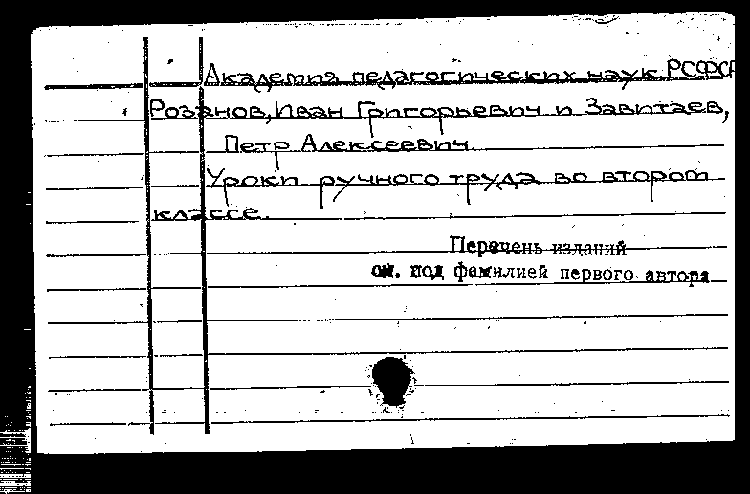 Академия педагогических наук РСФСР
Розанов, Иван Григорьевич и Завитаев,
Петр Алексеевич.
Уроки ручного труда во втором
классе.
Перечень изданий
см. под фамилией первого автора